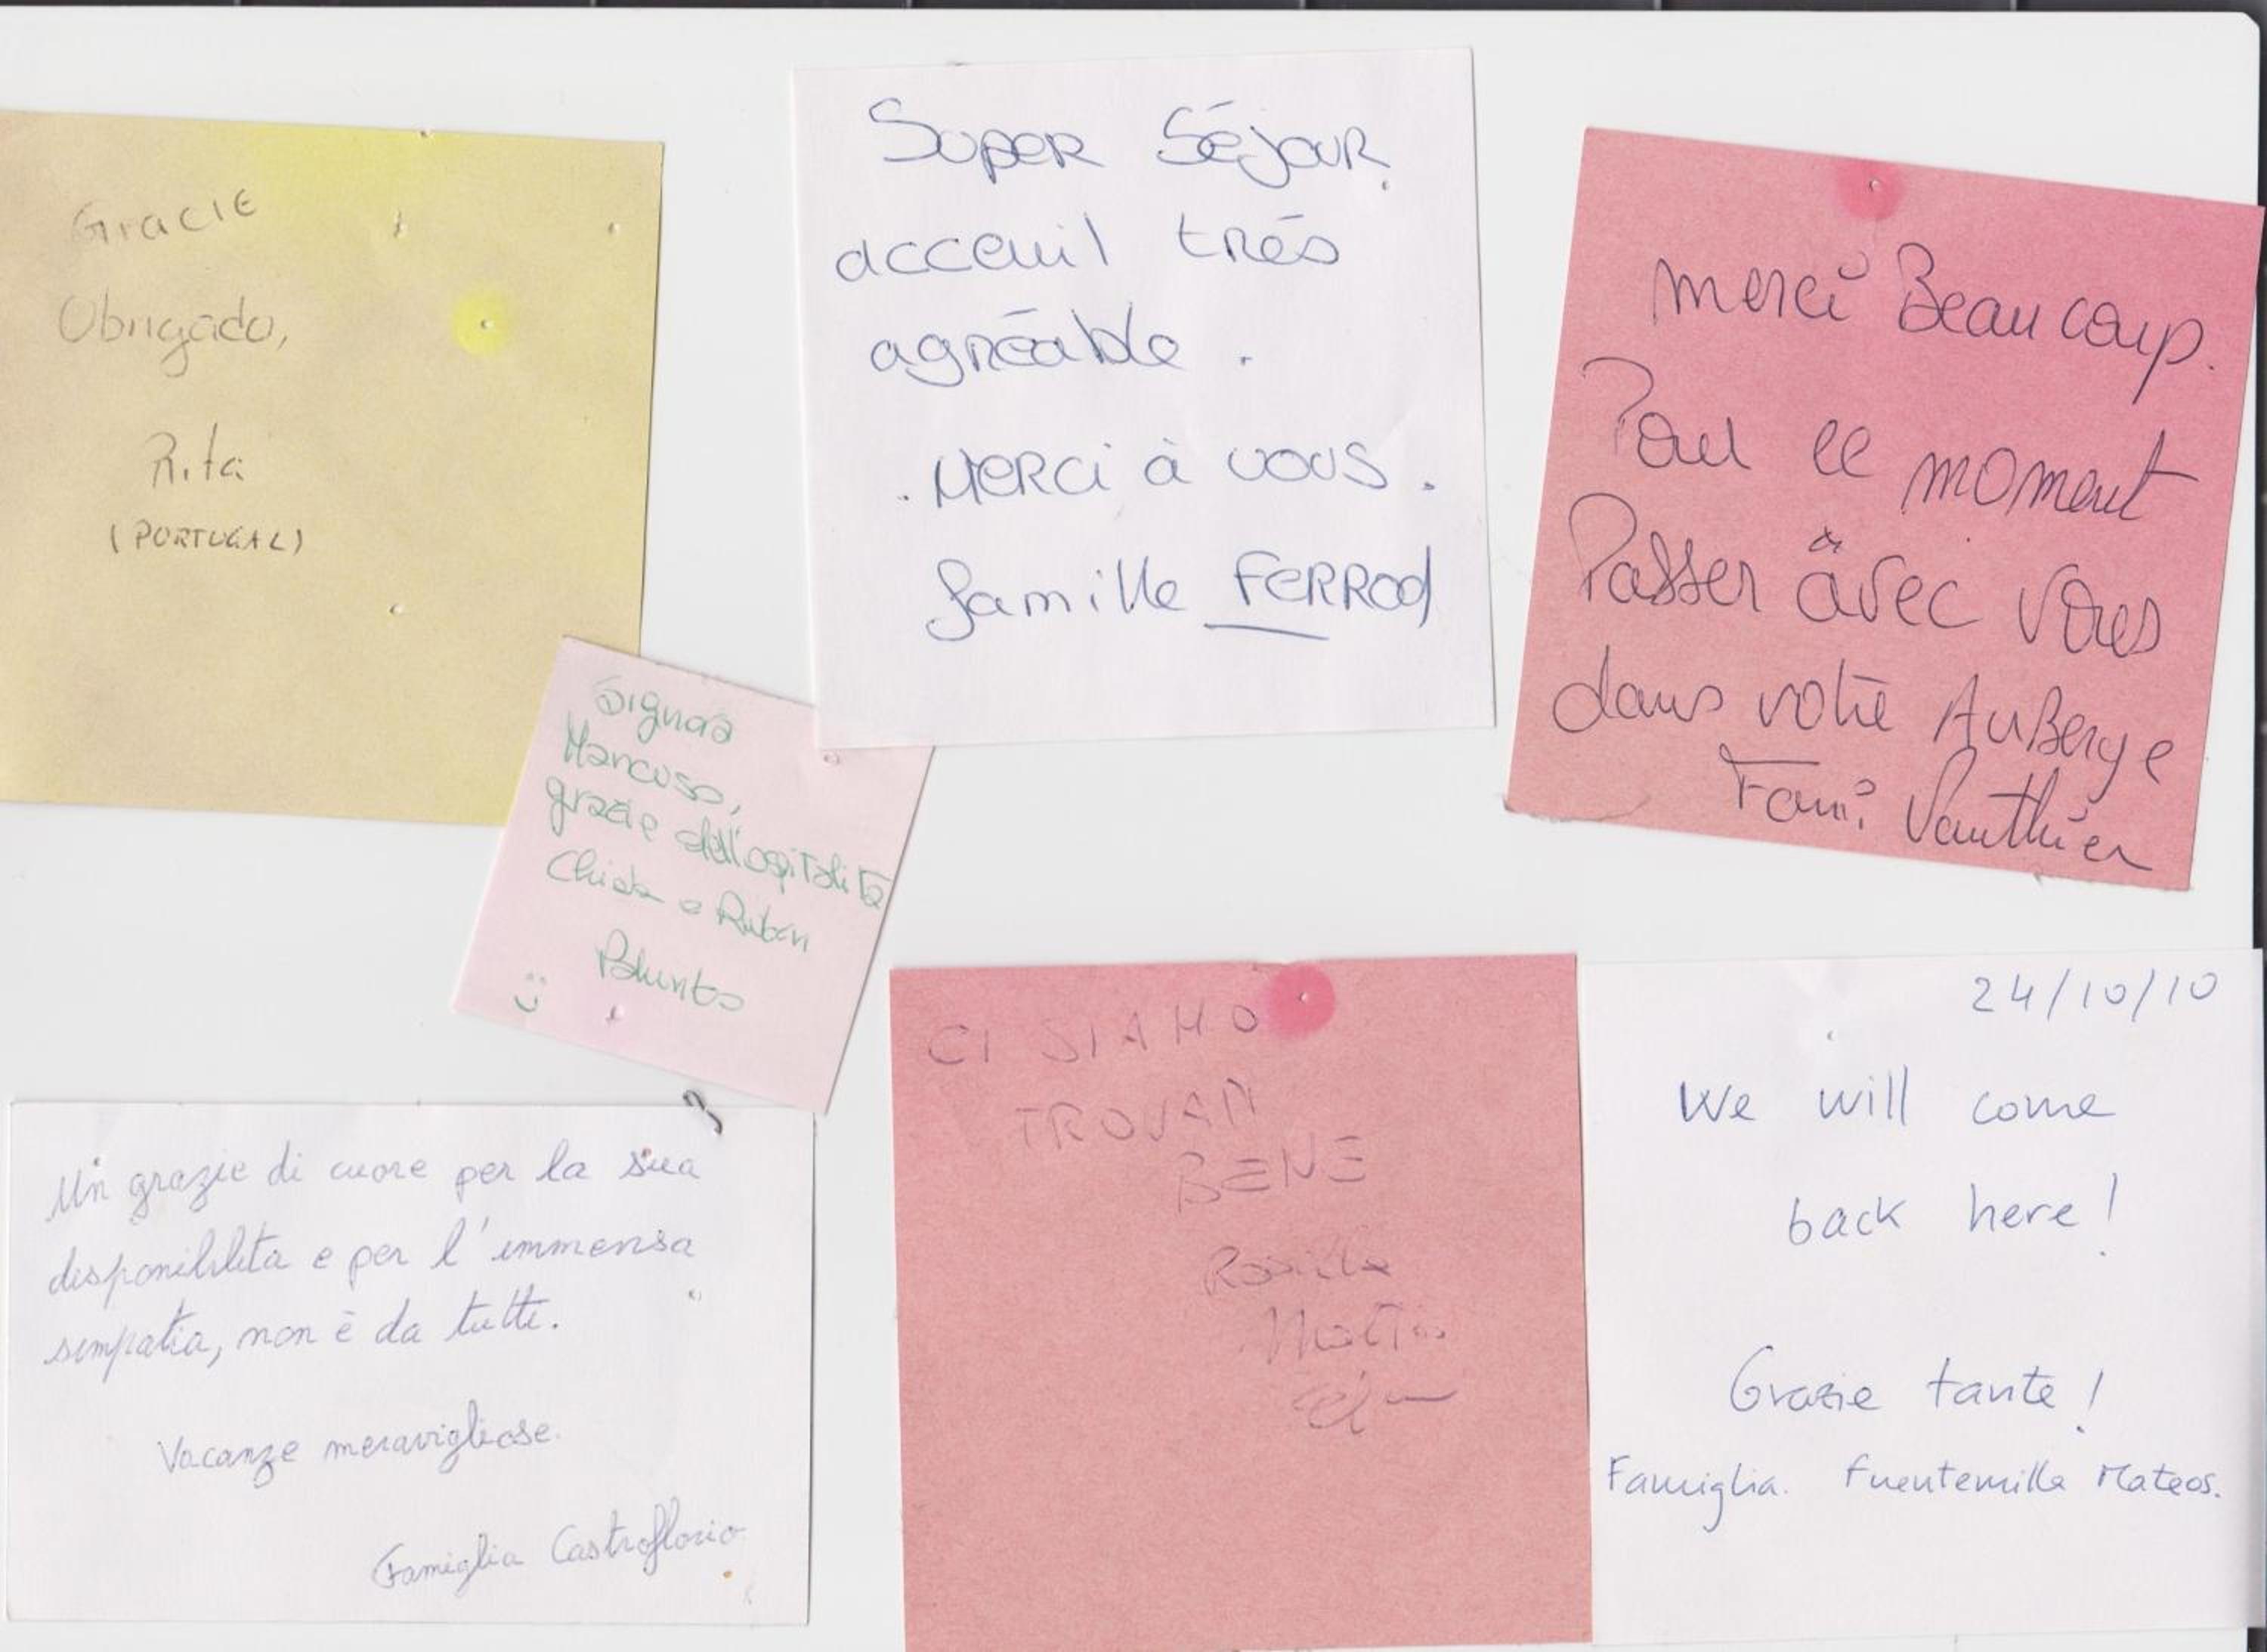 Gracie
Obrigado,
Rita
(PORTUGAL)
Super Séjour.
acceuil trés
agréable.
. Merci à vous.
famille FERROD
Merci Beaucoup.
Pour ce moment
Passer avec vous
dans votre AuBerge
Fami Vauthier
Signora
Mancuso,
grazie dell'ospitalità
Chiara e Ruben
Un grazie di cuore per la sua
disponibilita e per l'immensa
simpatia, non è da tutti.
Vacanze meravigliose.
Famiglia Castroflorio
CI SIAMO
TROVATI
BENE
24/10/10
We will come
back here!
Grazie tante!
Famiglia. Fuentemilla Mateos.